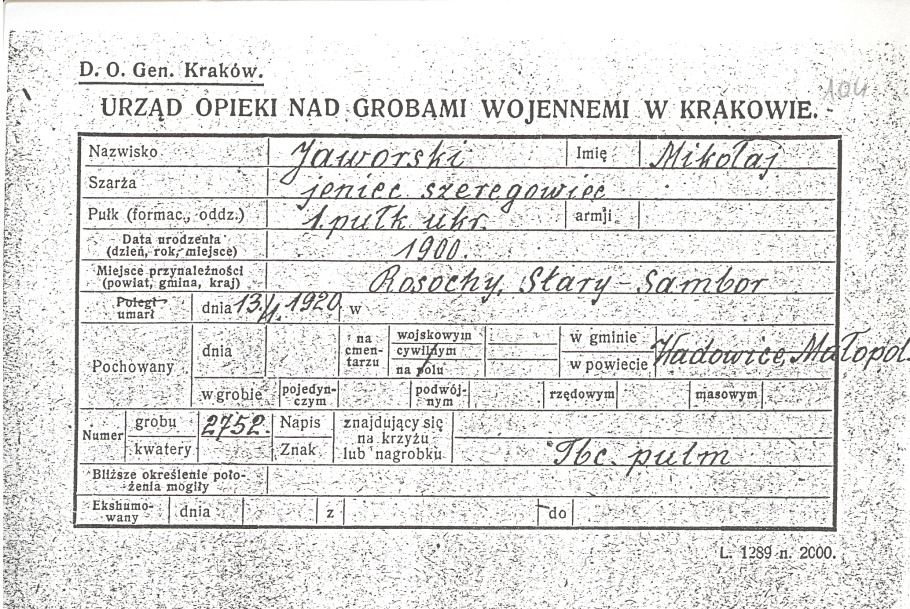 D. O. Gen. Kraków.
104
URZĄD OPIEKI NAD GROBAMI WOJENNEMI W KRAKOWIE.
Nazwisko Jaworski Imię Mikołaj
Szarża jeniec szeregowiec
Pułk (formac., oddz.) 1. pułk ukr. armji
Data urodzenia (dzień, rok, miejsce) 1900.
Miejsce przynależności (powiat, gmina, kraj) Rosochy, Stary-Sambor
Poległ
umarł dnia 13/ 1920 w
Pochowany dnia na cmentarzu wojskowym
cywilnym
na polu
w gminie Wadowice, Małopol.
w powiecie
w grobie pojedyn-
czym
podwój-
nym
rzędowym masowym
Numer grobu 2752.
kwatery
Napis
Znak
znajdujący się
na krzyżu
lub nagrobku
Tbc. pulm
Bliższe określenie poło-
żenia mogiły
Ekshumo-
wany
dnia z do
L. 1289 n. 2000.